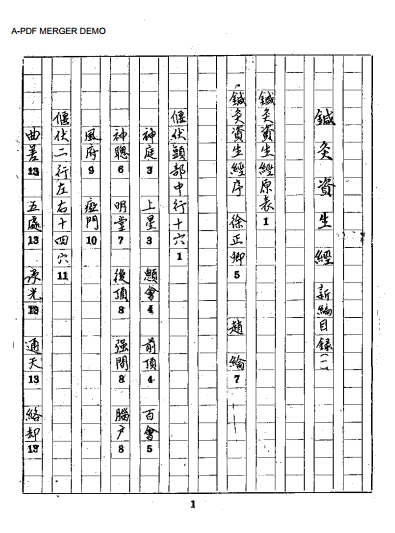 A-PDF MERGER DEMO
鍼灸資生經 新編目録(一)
鍼灸資生經原表1
鍼灸資生經序 徐正卿5 趙綸7
偃伏頭部中行十六穴1
神庭3 上星3 顖會4 前頂4 百會5
神聰6 明堂7 後頂8 强間8 腦户8
風府9 瘂門10
偃伏二行左右十四穴11
曲差13 五處13 承光13 通天13 絡却13
1